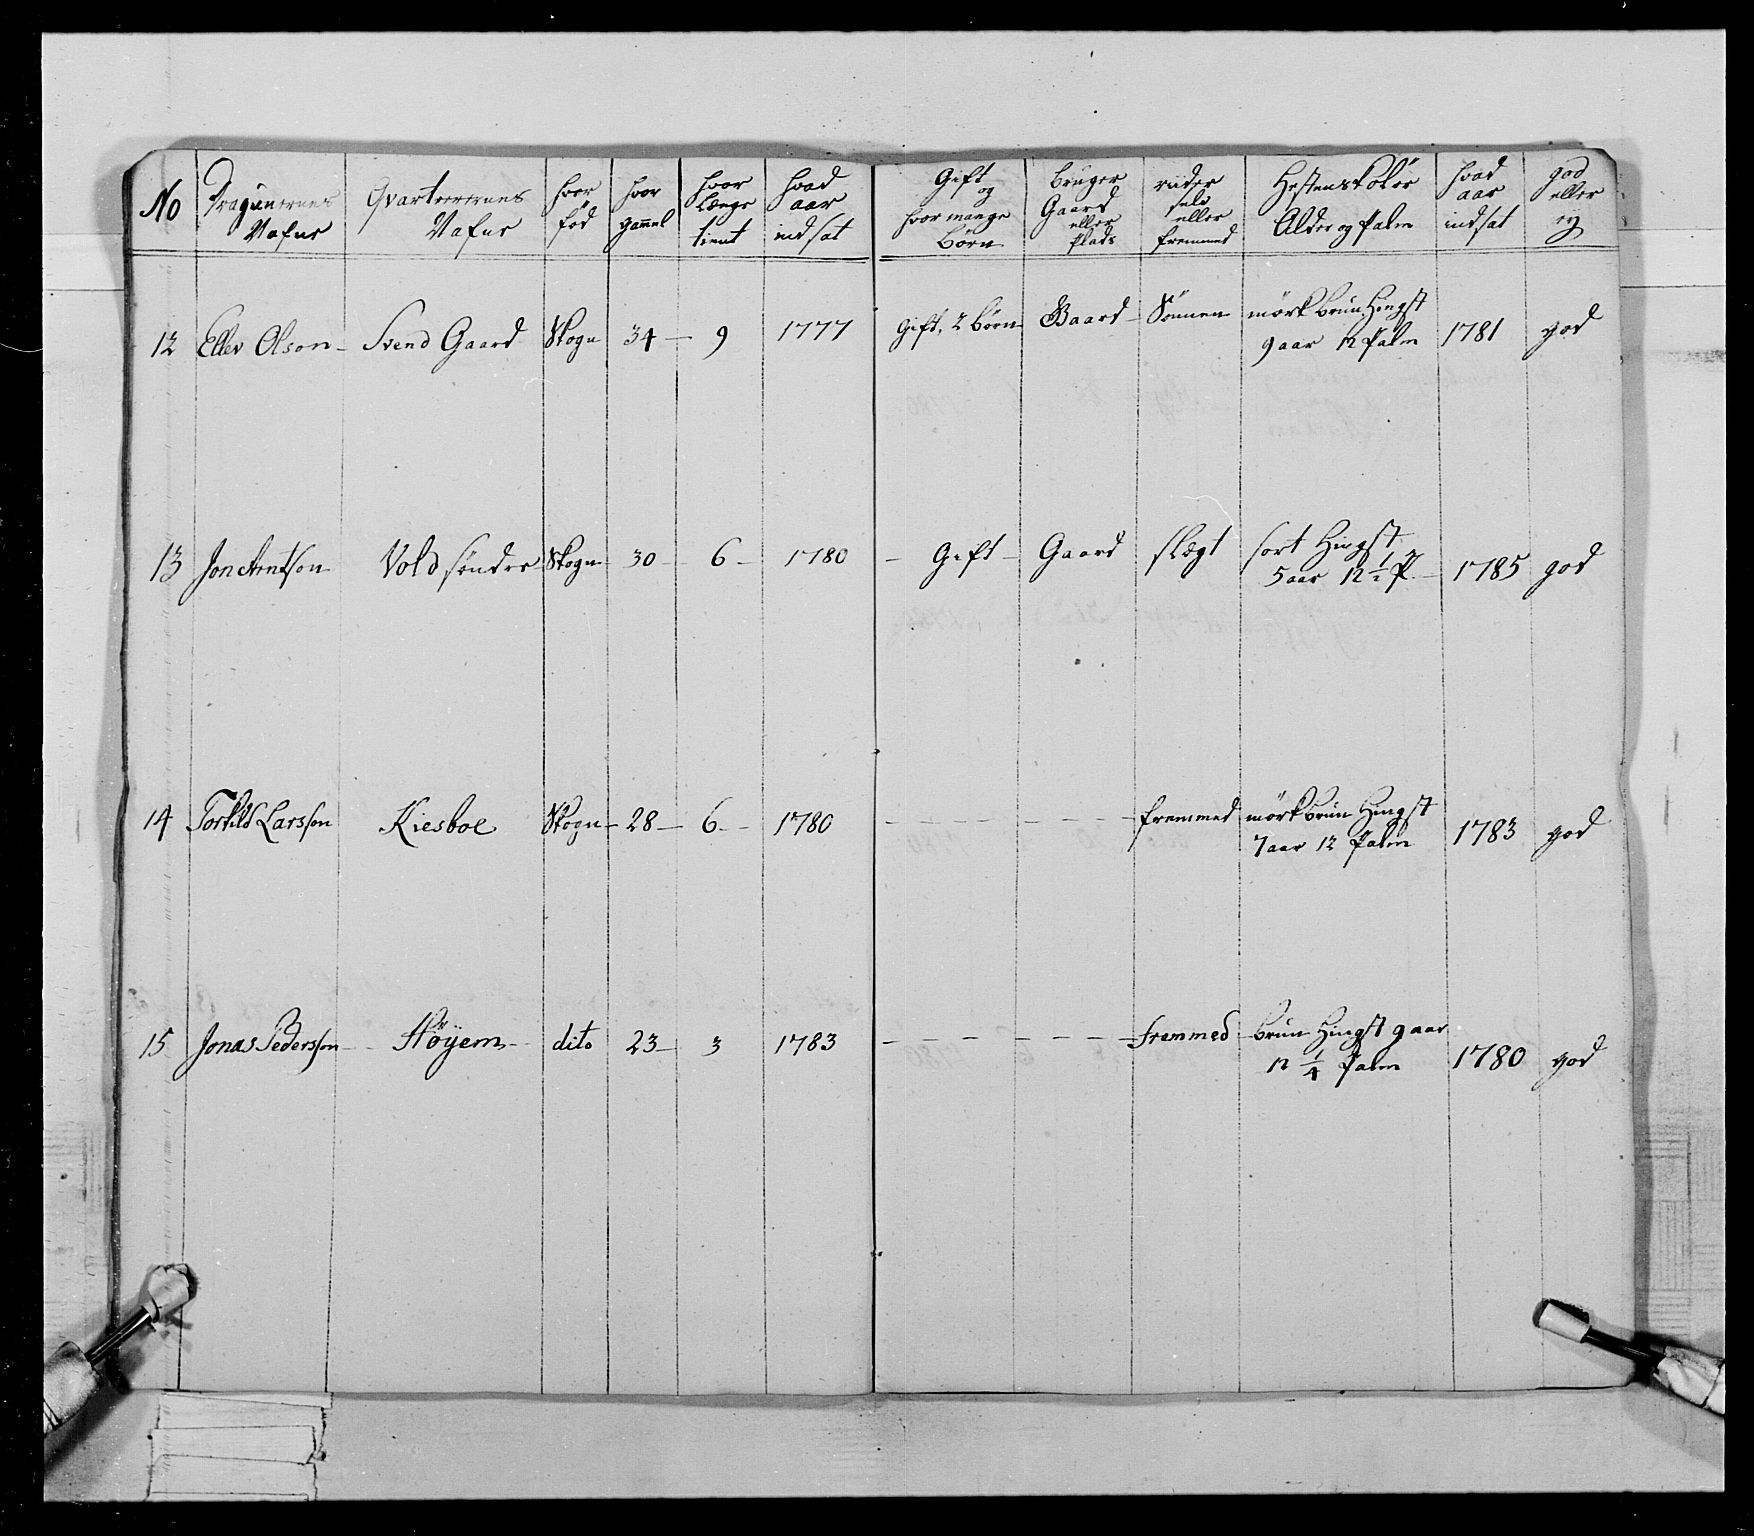 No | Dragunernes Nafne | Qvarterernes Nafne | hvor fød | hvor gammel | hvor Længe tient | hvad aar indsat | Gift og hvor mange Børn | bruger Gaard eller Plads | riider selv eller fremmed | Hestens Kolør Alder og Palm | hvad aar indsat | god eller ey
12 Ellev Olson - Svend Gaard Skogn 34 - 9 1777 Gift, 2 børn Gaard - Sønnen mørk brun Hingst
9 aar 12 Palm 1781 god
13 Jon Arntson Vold søndre Skogn 30 - 6 - 1780 - Gift - Gaard slægt sort Hingst
5 aar 12 1/2 P. - 1785 god
14 Torkild Larsson Kiesboe Skogn - 28 - 6 - 1780 - - - - fremmed mørk brun Hingst
7 aar 12 Palm 1783 god
15 Jonas Pedersson - Høyem - dito 23 - 3 1783 - - - - fremmed brun Hingst 9 aar
12 1/4 Palm 1780 god